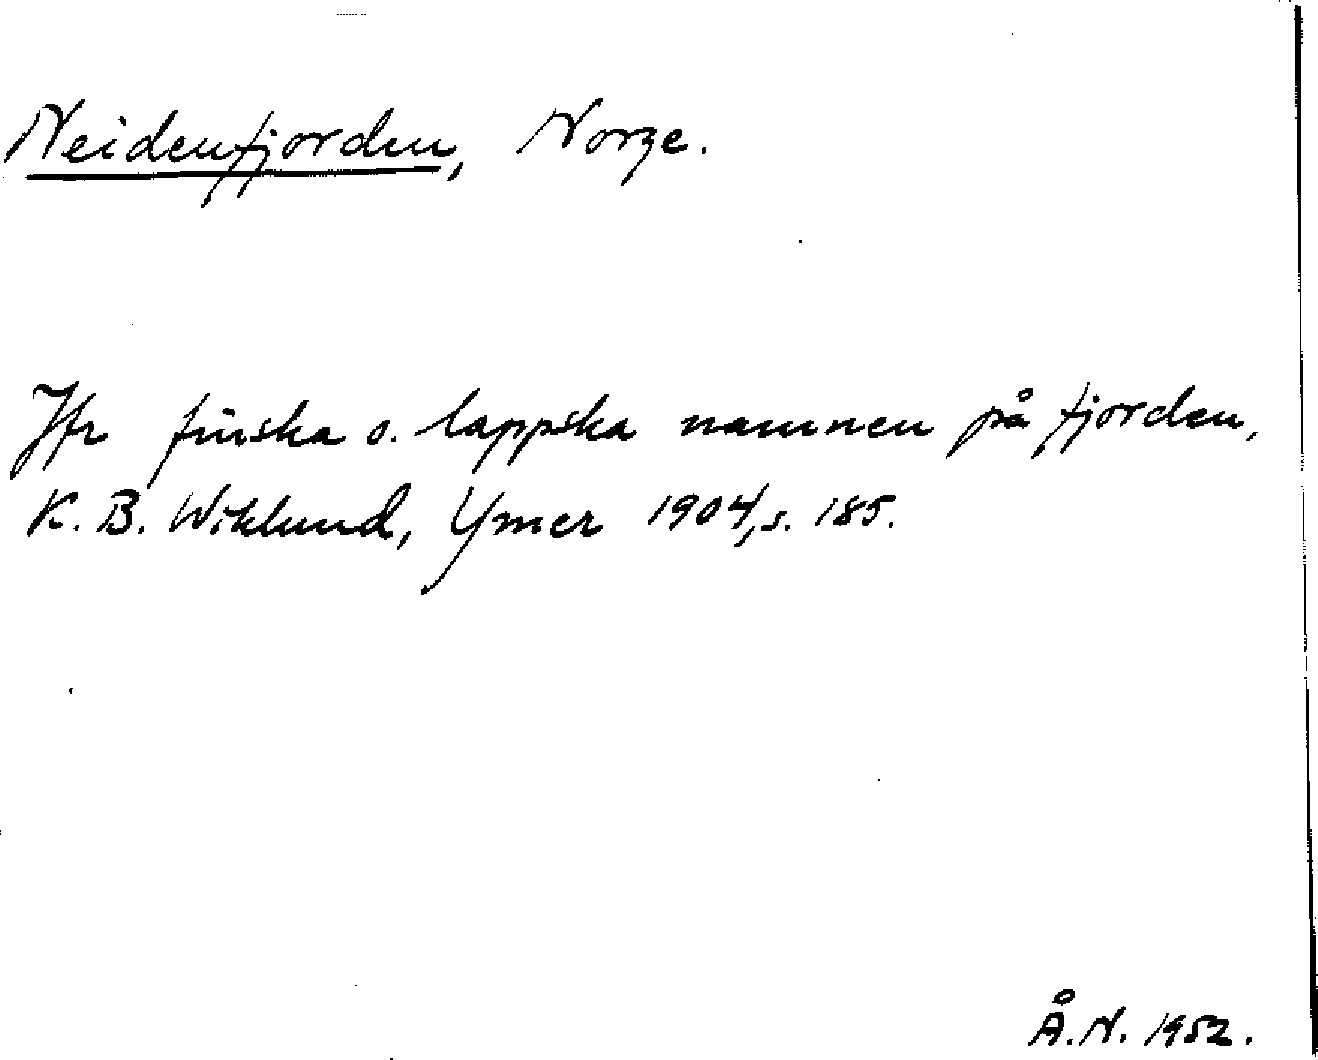 Neidenfjorden, Norge.
Jfr finska o. lappska namnen på fjorden,
K. B. Wiklund, Ymer 1904, s. 185.
Å.N. 1952.